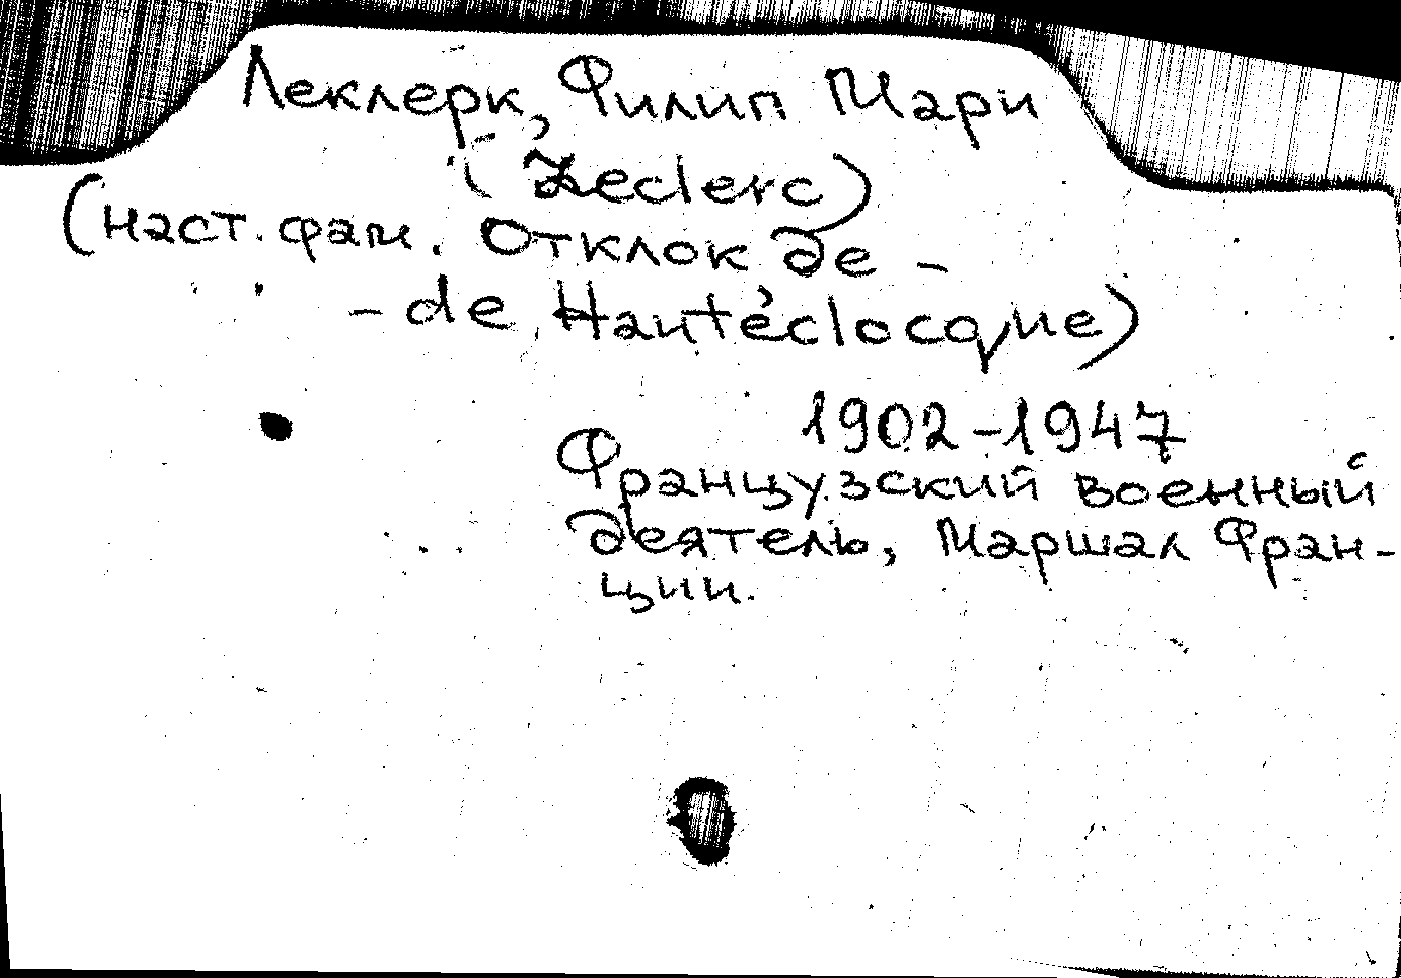 Леклерк, Филип Мари
(Leclerc)
(наст. фам. Отклок де -
- de Hautéclocque)
1902-1947
Французский военный
деятель, Маршал Фран-
ции.